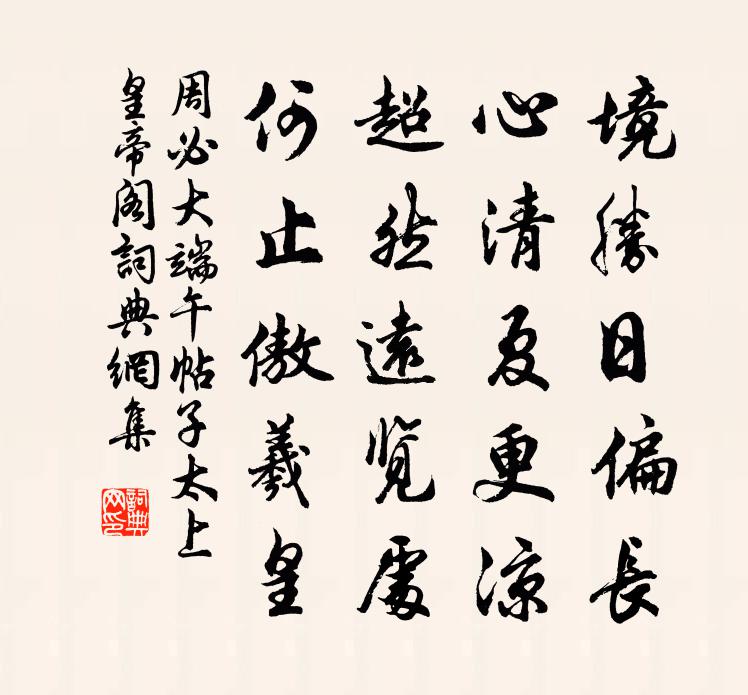 境勝日偏長
心清夏更涼
超然遠覽處
何止傲羲皇
周必大端午帖子太上
皇帝閣詞典網集
詞典網印